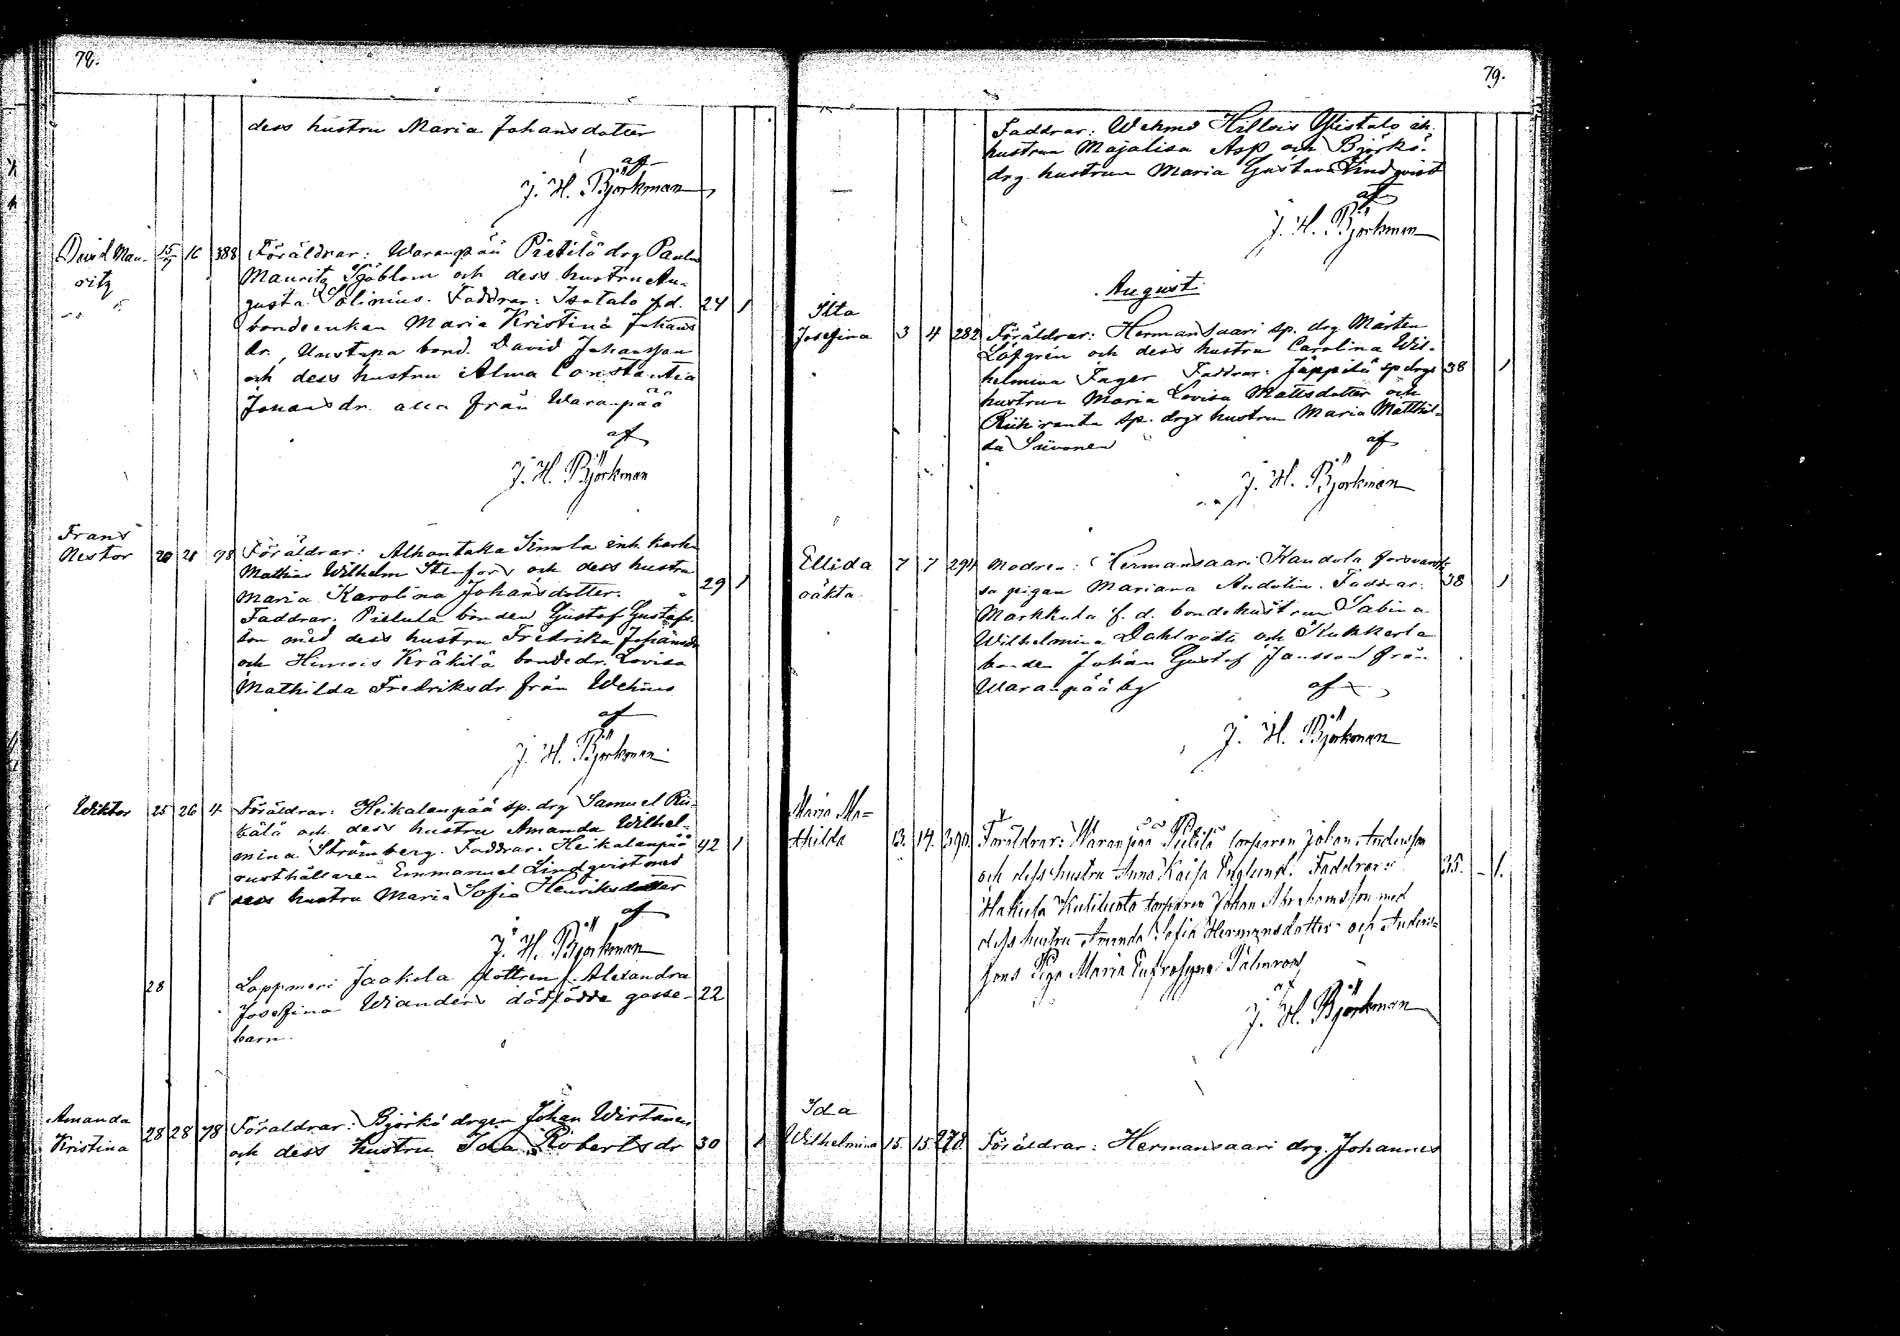 78.
dess hustru Maria Johansdotter
af
J. H. Björkman
David Mau-
ritz
15/7 16 388 Föräldrar: Waranpää Pietilä drg Paulu
Mauritz Sjöblom och dess hustru Au-
gusta Salinius. Faddrar: Isotalo f.d. 24 1
bondeenkan Maria Kristina Johans
dr., Unstupa bond. David Johansson
och dess hustru Alma Constantia
Johansdr. alla från Waranpää
af
J. H. Björkman
Frans
Nestor 20 21 98 Föräldrar: Alhontaka Simola inh. karln
Mathias Wilhelm Stenfors och dess hustru
Maria Karolina Johansdotter. 29 1
Faddrar: Pietula bonden Gustaf Gustafs
son med dess hustru Fredrika Johansdr
och Himois Kräkilä bondedr. Lovisa
Mathilda Fredriksdr. från Wehmo
af
J. H. Björkman
Wiktor 25 26 4 Föräldrar: Heikalanpää sp. drg Samuel Rii-
kälä och dess hustru Amanda Wilhel-
mina Strömberg. Faddrar: Heikalanpää 42 1
rusthållaren Emmanuel Lindqvist med
dess hustru Maria Sofia Henriksdotter
af
J. H. Björkman
28 Lappmeri Jaakola dottren f. Alexandra
Josefina Wianders dödfödde gosse- 22
barn.
Amanda
Kristina 28 28 98 Föraldrar: Björkö drgen Johan Wirtanen
och dess hustru Ida Robertsdr 30 1
79.
Faddrar: Wehmo Hillois Ylistalo
hustrun Majalisa Asp och Björkö
drg. hustrun Maria Gustava Lindqvist
af
J. H. Björkman
August
Ilta
Josefina 3 4 282 Föräldrar: Hermansaari sp. drg Mårten
Löfgrén och dess hustru Carolina Wil-
helmina Fager Faddrar: Jäppilä sp drgs 38 1
hustrun Maria Lovisa Mattsdotter och
Riihiranta sp. drgs hustrun Maria Matthil-
da Suvonen
af
J. H. Björkman
Ellida
oäkta 7 7 294 Modren: Hermansaari Kandola försvarslö
sa pigan Mariana Andelin. Faddrar: 38 1
Markkula f.d. bondehustrun Sabina
Wilhelmina Dahlroth och Kukkerla
bonden Johan Gustaf Jansson från
Waranpää by af
J. H. Björkman
Maria Ma-
thilda 13. 14. 390. Föräldrar: Waranpää Pietilä torparen Johan Andersson
och dess hustru Anna Kaisa Englund. Faddrar: 35. 1.
Hakula Kulihuoto torparen Johan Abrahamsson med
dess hustru Amanda Sofia Hermansdotter och Anders-
sons Piga Maria Eufrosyna Palmroos
af
J. H. Björkman
Ida
Wilhelmina 15. 15. 278. Föräldrar: Hermansaari drg. Johannes